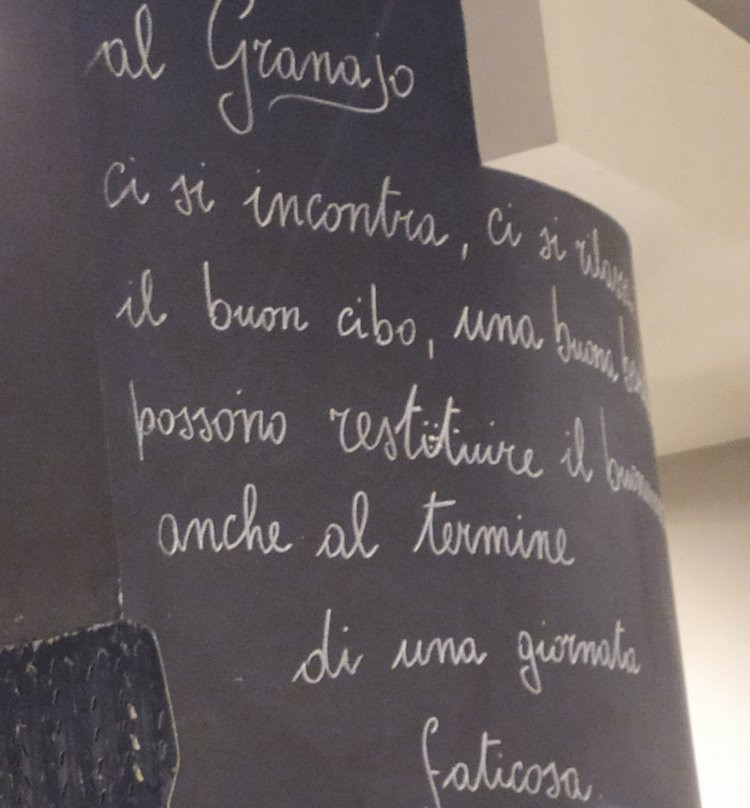 al Granajo
ci si incontra, ci si rilassa
il buon cibo, una buona
possono restituire il
anche al termine
di una giornata
faticosa.